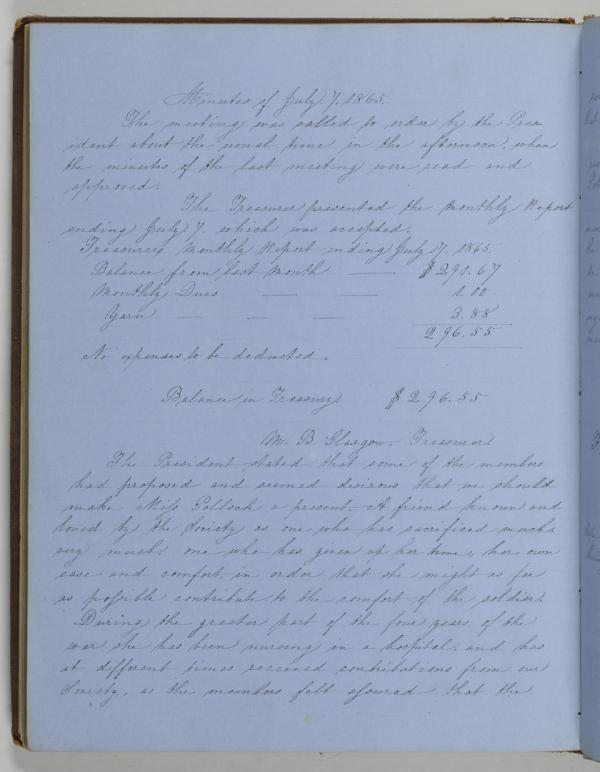 Minutes of July 7. 1865.
The meeting was called to order by the Pres
ident about the usual time in the afternoon, when
the minutes of the last meeting were read and
approved.
The Treasurer presented the Monthly Report
ending July 7. which was accepted.
Treasurers Monthly Report ending July 7. 1865.
Balance from last Month — $291.67
Monthly Dues — — 1.00
Yarn — — — 3.88
296.55
No expenses to be deducted.
Balance in Treasury $296.55
M. B. Glasgow. Treasurer
The President stated that some of the members
had proposed and seemed desirous that we should
make Miss Pollock a present. A friend known and
loved by the Society as one who has sacrificed much,
very much: one who has given up her time, her own
ease and comfort, in order that she might as far
as possible contribute to the comfort of the soldier.
During the greater part of the four years of the
war she has been nursing in a hospital, and has
at different times received contributions from our
Society, as the members felt assured that the